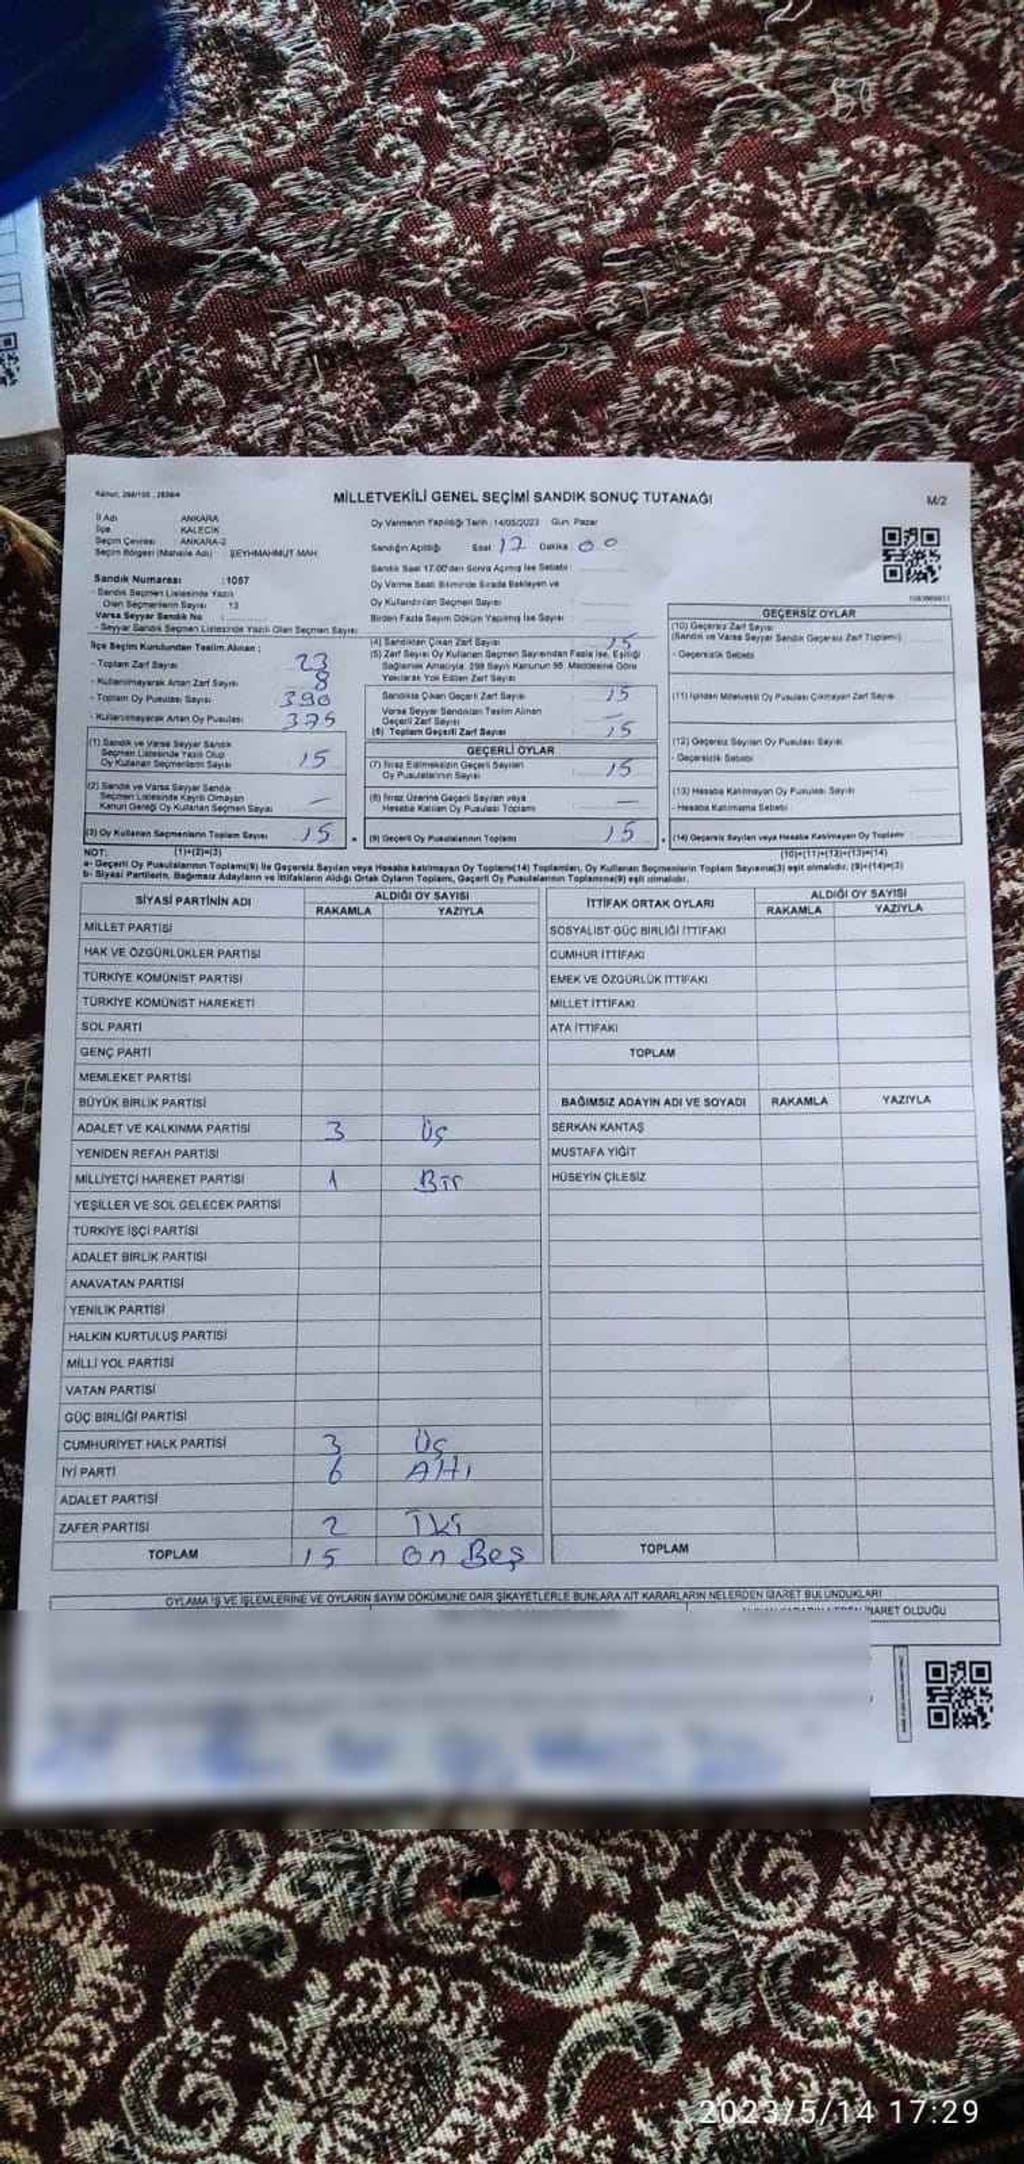 Kanun: 298/105 ; 2839/4
MİLLETVEKİLİ GENEL SEÇİMİ SANDIK SONUÇ TUTANAĞI
M/2
İl Adı ANKARA
İlçe KALECİK
Seçim Çevresi ANKARA-2
Seçim Bölgesi (Mahalle Adı) : ŞEYHMAHMUT MAH.
Oy Vermenin Yapıldığı Tarih : 14/05/2023 Gün: Pazar
Sandığın Açıldığı Saat 17 Dakika 00
Sandık Saat 17.00'den Sonra Açılmış İse Sebebi :
Sandık Numarası :1057
- Sandık Seçmen Listesinde Yazılı
Olan Seçmenlerin Sayısı 13
Varsa Seyyar Sandık No
- Seyyar Sandık Seçmen Listesinde Yazılı Olan Seçmen Sayısı
Oy Verme Saati Bitiminde Sırada Bekleyen ve
Oy Kullandırılan Seçmen Sayısı
Birden Fazla Sayım Döküm Yapılmış İse Sayısı
İlçe Seçim Kurulundan Teslim Alınan ;
- Toplam Zarf Sayısı 23
- Kullanılmayarak Artan Zarf Sayısı 8
- Toplam Oy Pusulası Sayısı 390
- Kullanılmayarak Artan Oy Pusulası 375
(1) Sandık ve Varsa Seyyar Sandık
Seçmen Listesinde Yazılı Olup
Oy Kullanan Seçmenlerin Sayısı 15
(2) Sandık ve Varsa Seyyar Sandık
Seçmen Listesinde Kayıtlı Olmayan
Kanun Gereği Oy Kullanan Seçmen Sayısı —
(3) Oy Kullanan Seçmenlerin Toplam Sayısı 15
(1)+(2)=(3)
(4) Sandıktan Çıkan Zarf Sayısı 15
(5) Zarf Sayısı Oy Kullanan Seçmen Sayısından Fazla İse, Eşitliği
Sağlamak Amacıyla, 298 Sayılı Kanunun 98. Maddesine Göre
Yakılarak Yok Edilen Zarf Sayısı
Sandıkta Çıkan Geçerli Zarf Sayısı 15
Varsa Seyyar Sandıktan Teslim Alınan
Geçerli Zarf Sayısı —
(6) Toplam Geçerli Zarf Sayısı 15
GEÇERLİ OYLAR
(7) İtiraz Edilmeksizin Geçerli Sayılan
Oy Pusulalarının Sayısı 15
(8) İtiraz Üzerine Geçerli Sayılan veya
Hesaba Katılan Oy Pusulası Toplamı —
(9) Geçerli Oy Pusulalarının Toplamı 15
GEÇERSİZ OYLAR
(10) Geçersiz Zarf Sayısı
(Sandık ve Varsa Seyyar Sandık Geçersiz Zarf Toplamı)
- Geçersizlik Sebebi
(11) İçinden Milletvekili Oy Pusulası Çıkmayan Zarf Sayısı
(12) Geçersiz Sayılan Oy Pusulası Sayısı
- Geçersizlik Sebebi
(13) Hesaba Katılmayan Oy Pusulası Sayısı
- Hesaba Katılmama Sebebi
(14) Geçersiz Sayılan veya Hesaba Katılmayan Oy Toplamı
(10)+(11)+(12)+(13)=(14)
NOT:
a- Geçerli Oy Pusulalarının Toplamı(9) ile Geçersiz Sayılan veya Hesaba katılmayan Oy Toplamı(14) Toplamları, Oy Kullanan Seçmenlerin Toplam Sayısına(3) eşit olmalıdır. (9)+(14)=(3)
b- Siyasi Partilerin, Bağımsız Adayların ve İttifakların Aldığı Ortak Oyların Toplamı, Geçerli Oy Pusulalarının Toplamına(9) eşit olmalıdır.
SİYASİ PARTİNİN ADI ALDIĞI OY SAYISI
RAKAMLA YAZIYLA
MİLLET PARTİSİ
HAK VE ÖZGÜRLÜKLER PARTİSİ
TÜRKİYE KOMÜNİST PARTİSİ
TÜRKİYE KOMÜNİST HAREKETİ
SOL PARTİ
GENÇ PARTİ
MEMLEKET PARTİSİ
BÜYÜK BİRLİK PARTİSİ
ADALET VE KALKINMA PARTİSİ 3 Üç
YENİDEN REFAH PARTİSİ
MİLLİYETÇİ HAREKET PARTİSİ 1 Bir
YEŞİLLER VE SOL GELECEK PARTİSİ
TÜRKİYE İŞÇİ PARTİSİ
ADALET BİRLİK PARTİSİ
ANAVATAN PARTİSİ
YENİLİK PARTİSİ
HALKIN KURTULUŞ PARTİSİ
MİLLİ YOL PARTİSİ
VATAN PARTİSİ
GÜÇ BİRLİĞİ PARTİSİ
CUMHURİYET HALK PARTİSİ 3 Üç
İYİ PARTİ 6 Altı
ADALET PARTİSİ
ZAFER PARTİSİ 2 İki
TOPLAM 15 On Beş
İTTİFAK ORTAK OYLARI ALDIĞI OY SAYISI
RAKAMLA YAZIYLA
SOSYALİST GÜÇ BİRLİĞİ İTTİFAKI
CUMHUR İTTİFAKI
EMEK VE ÖZGÜRLÜK İTTİFAKI
MİLLET İTTİFAKI
ATA İTTİFAKI
TOPLAM
BAĞIMSIZ ADAYIN ADI VE SOYADI RAKAMLA YAZIYLA
SERKAN KANTAŞ
MUSTAFA YİĞİT
HÜSEYİN ÇİLESİZ
TOPLAM
OYLAMA İŞ VE İŞLEMLERİNE VE OYLARIN SAYIM DÖKÜMÜNE DAİR ŞİKAYETLERLE BUNLARA AİT KARARLARIN NELERDEN İBARET BULUNDUKLARI
İBARET OLDUĞU
2023/5/14 17:29